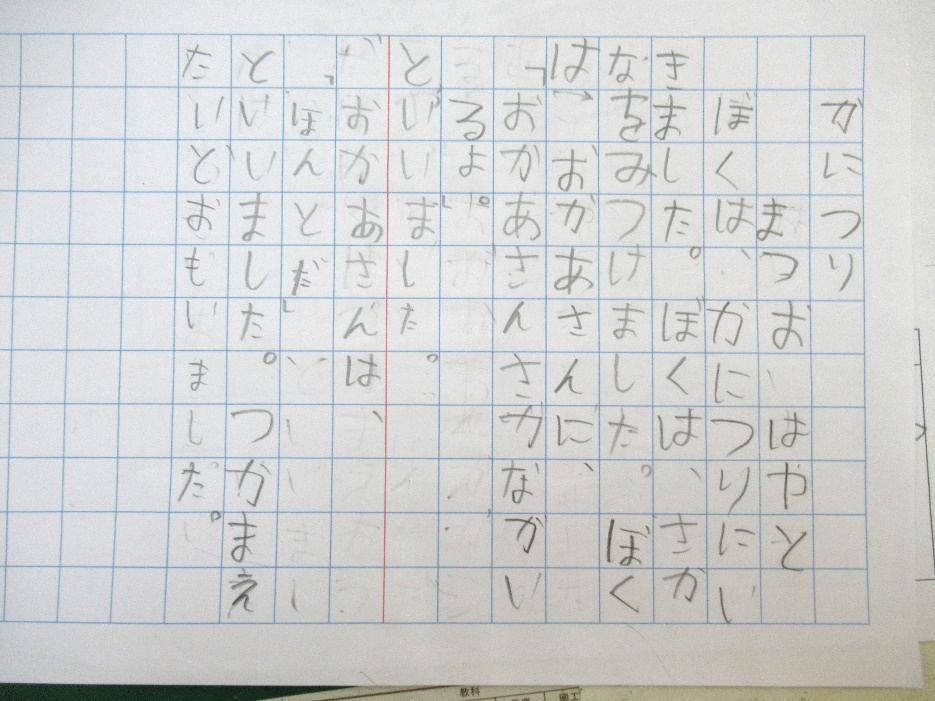 かにつり
まつお はやと
ぼくは、かにつりにい
きました。ぼくは、さか
なをみつけました。ぼく
は→おかあさんに、
「おかあさんさかなかい
るよ。」
といいました。
おかあさんは、
「ほんとだ」
といいました。つかまえ
たいとおもいました。
教科
図工